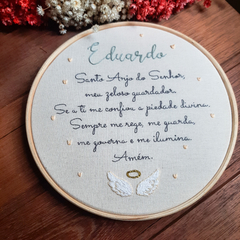 Eduardo
Santo Anjo do Senhor,
meu zeloso guardador.
Se a ti me confiou a piedade divina.
Sempre me rege, me guarda,
me governa e me ilumina.
Amém.